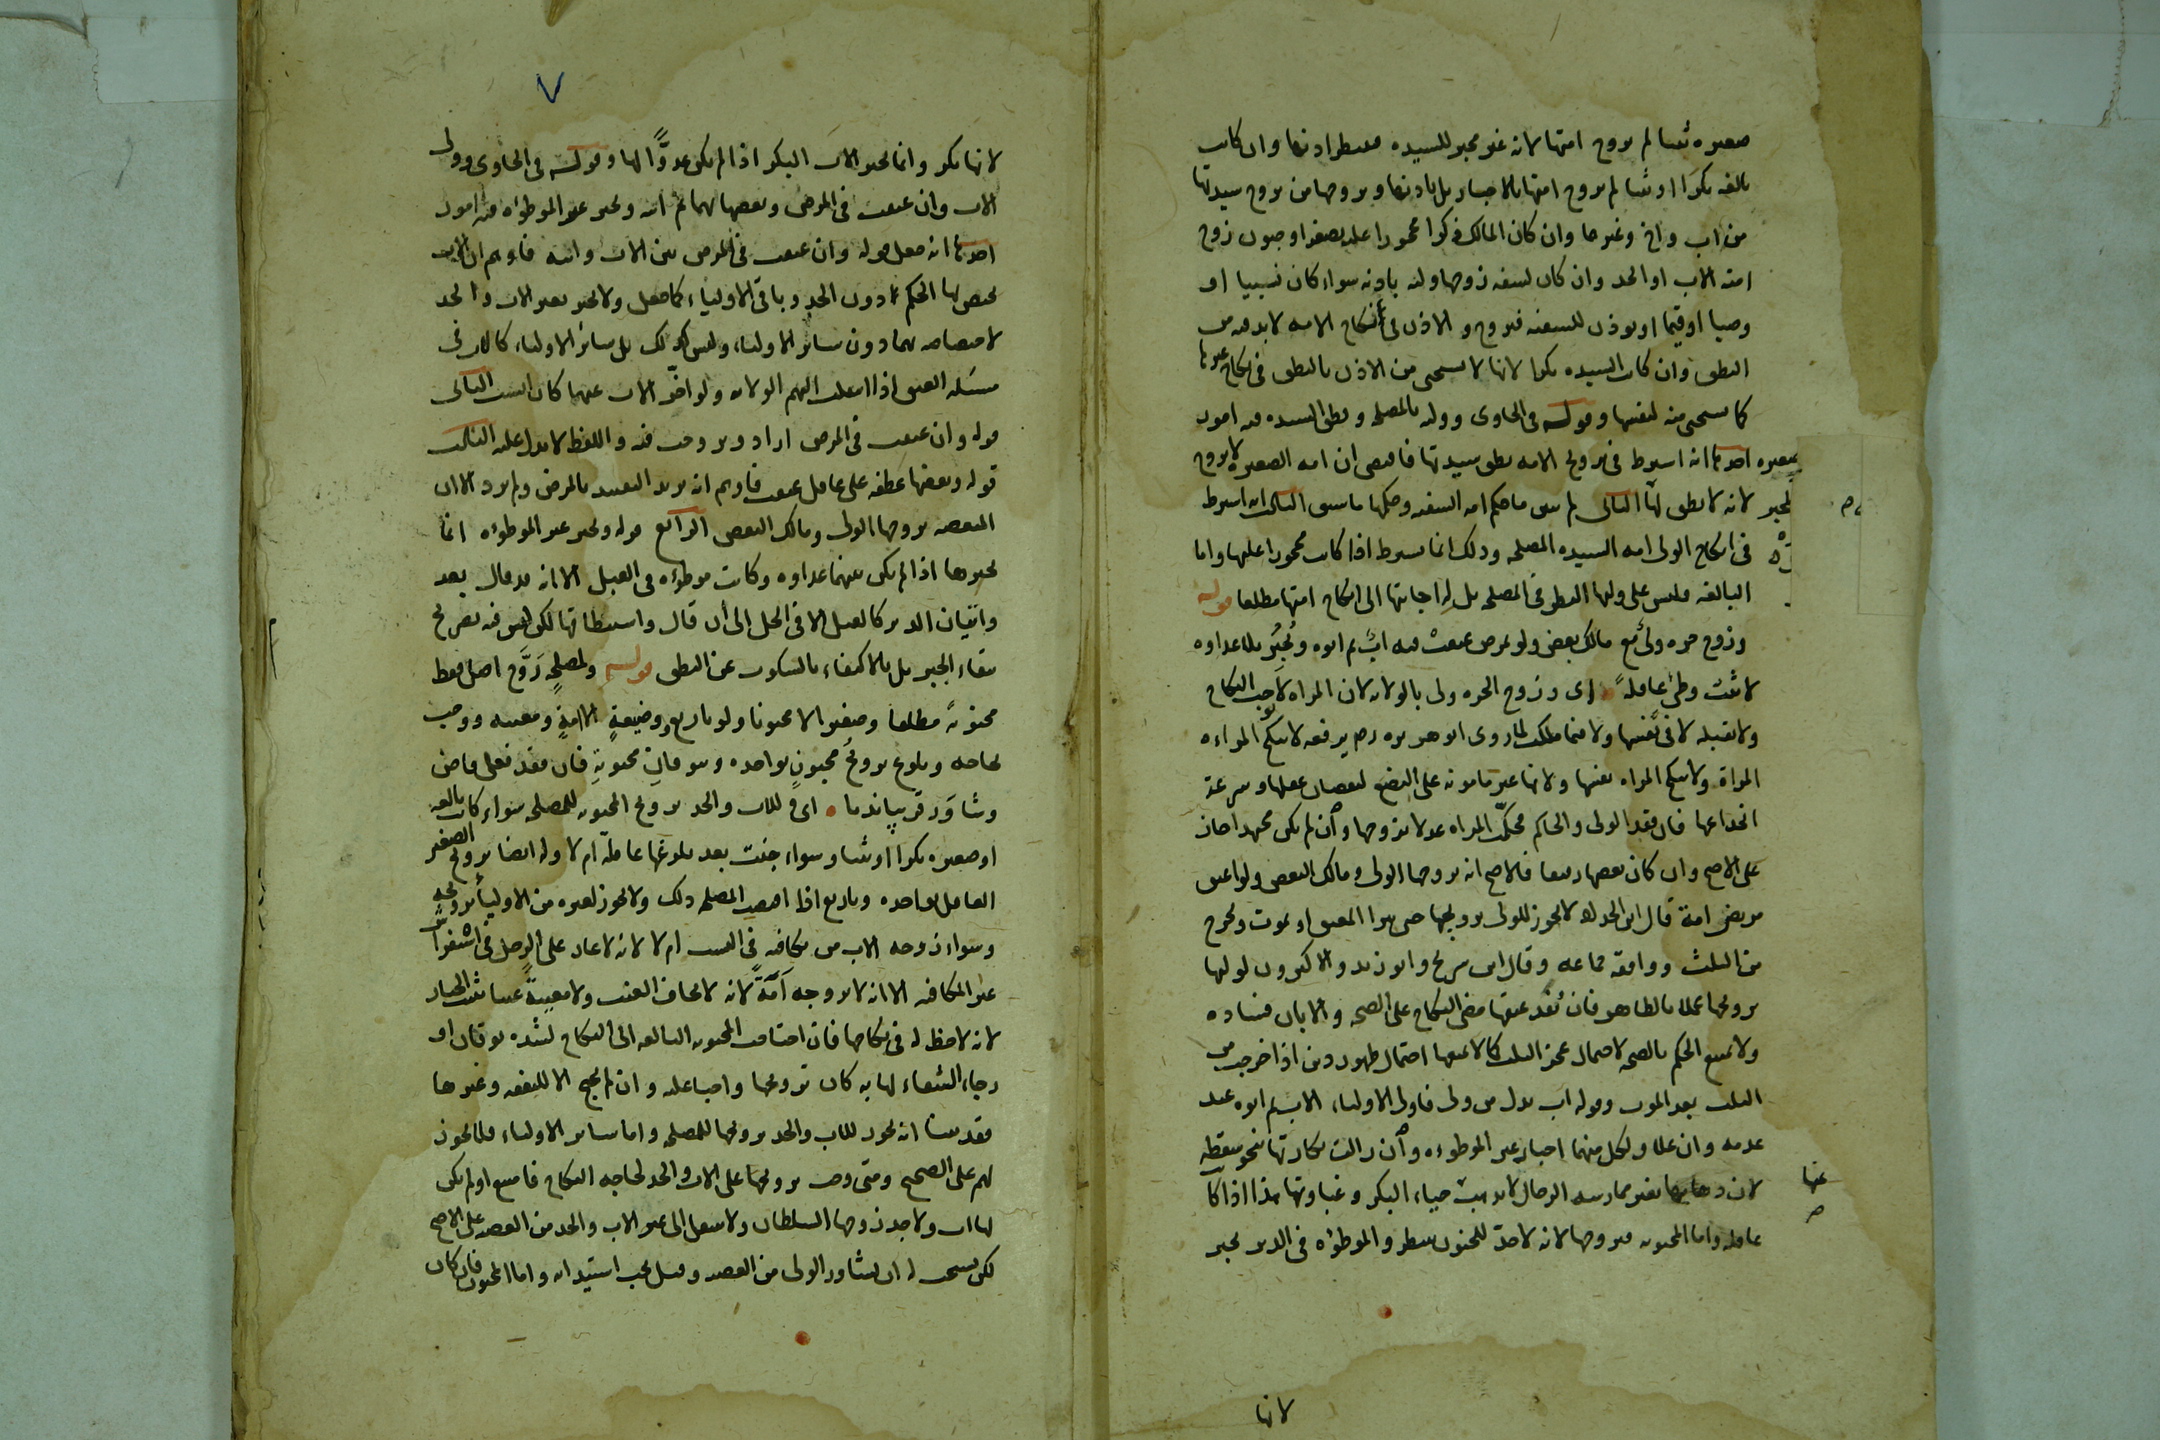 صغيره ثيبا لم يزوج امتها لانه غير مجبر للسيده فينتظر اذنها وان كانت
بالغه بكرا او ثيبا لم يزوج امتها بالاجبار بل باذنها ويزوجها من يزوج سيدتها
من اب واخ وغيرها وان كان المالك ذكرا محجورا عليه بصغر او جنون زوج
امته الاب او الجد وان كان لسفه زوجها وليه باذنه سواء كان نسيبا او
وصيا او قيما او يوذن للسفيه فيزوج والاذن في انكاح الامه لابد فيه من
النطق وان كانت السيده بكرا لانها لا تستحي من الاذن بالنطق في نكاح غيرها
كما تستحي منه لنفسها وقوله في الحاوي ووليه بالمصلحه ونطق السيده فيه امور
احدها انه اشترط في تزويج الامه نطق سيدتها فاقتضى ان امه الصغيره لا يزوج
لانه لا نطق لها الثاني لم يبين ما حكم امه السفيه وحكمها ما سبق الثالث انه اشترط
في انكاح الولي امه السيده المصلحه وذلك انما يشترط اذا كانت محجورا عليها واما
البالغه فليس على وليها النظر في المصلحه بل له اجابتها الى انكاح امتها مطلقا قوله
وزوج حره ولي مع مالك بعض ولو بمرض عتقت فيه اب ثم ابوه ويجبر بلا عداوه
لا ثيب وطئ عاقلة اي وزوج الحره ولي بالولايه لان المراه لا تجب النكاح
ولا تقبله لا في نفسها ولا فيما ملكت لما روى ابو هريره رضه يرفعه لا تنكح المراه
المراة ولا تنكح المراه نفسها ولانها غير مامونه على البضع لنقصان عقلها وسرعة
انخداعها فان فقد الولي والحاكم فحكّمت المراه عدلا يزوجها وان لم يكن مجتهدا جاز
على الاصح وان كان بعضها رقيقا فالاصح انه يزوجها الولي ومالك البعض ولو اعتق
مريض امة قال ابن الحداد لا يجوز للولي تزويجها حتى يبرا المعتق او يموت وتخرج
من الثلث ووافقه جماعه وقال ابن سريج وابو زيد والاكثرون لوليها
تزويجها عملا بالظاهر فان نفذ عتقها مضى النكاح على الصحه والا بان فساده
ولا يمنع الحكم بالصحه لاحتمال عجز الثلث كما لا يمنعها احتمال ظهور دين اذا خرجت من
الثلث بعد الموت وقوله اب بدل من ولي فاولى الاولياء الاب ثم ابوه عند
عدمه وان علا ولكل منهما اجبار غير الموطوءه وان زالت بكارتها بنحو سقطه
لان ذهابها بغير ممارسه الرجال لا يذهب حياء البكر وغباوتها هذا اذا كانت
عاقله واما المجنونه فيزوجها لانه لا حدّ للجنون ينتظر والموطؤه في الدبر تجبر
عنها
صح
لانها
٧
لانها بكر وانما يجبر الاب البكر اذا لم يكن عدوًّا لها وقوله في الحاوي وولي
الاب وان عتقت في المرض وبعضها لهما ثم ابنه ويجبر غير الموطؤه فيه امور
احدها انه فصل قوله وان عتقت في المرض بين الاب وابيه فاوهم ان الاب
يختص بها الحكم دون الجد وباقي الاولياء كما فصل ولا يجبر بغير الاب والجد
لاختصاصه بهما دون سائر الاولياء وليس كذلك بل سائر الاولياء كالاب في
مسئله العتق اذا انتقلت اليهم الولايه ولو اخّر الاب عنهما كان انسب الثاني
قوله وان عتقت في المرض اراد وتزوجت فيه واللفظ لا يدل عليه الثالث
قوله وبعضها عطفه على عامل عتقت فاوهم انه يريد التقييد بالمرض ولم يرد الا ان
المبعضه يزوجها الولي ومالك البعض الرابع قوله ويجبر غير الموطؤه انما
يجبرها اذا لم يكن بينهما عداوه وكانت موطؤه في القبل الا انه قد قال بعد
واتيان الدبر كالقبل الا في الحل الى أن قال واستنطاقها لكن ليس فيه تصريح
ببقاء الجبر بل بالاكتفاء بالسكوت عن النطق قوله ولمصلحةٍ زَوَّج اصل فقط
مجنونةً مطلقا وصغيرا لا مجنونا ولو باربع وضيعةٍ لا امةٍ ومعيبه ووجب
لحاجه وبلوغ تزويجُ مجنونٍ بواحده وتوقانِ مجنونةٍ فان فقد فعلى قاض
وشاوَرَ قريبا ندبا • اي للاب والجد تزويج المجنونه للمصلحه سواء كانت بالغه
او صغيره بكرا او ثيبا وسواء جنت بعد بلوغها عاقلة ام لا وله ايضا تزويج الصغير
العاقل بواحده وباربع اذا اقتضت المصلحه ذلك ولا يجوز لغيره من الاولياء تزويجه
وسواء زوجه الاب من مكافيه في النسب ام لا لانه لا عار على الرجل في استفراش
غير المكافيه الا انه لا يزوجه اَمَةً لانه لا يخاف العنت ولا معيبةً عيبا يثبت الخيار
لانه لا حظ له في نكاحها فان احتاجت المجنونه البالغه الى النكاح لشده توقان او
رجاء الشفاء لها به كان تزويجها واجبا عليه وان لم تحتج الا للنفقه وغيرها
فقد بينا انه يجوز للاب والجد تزويجها للمصلحه واما سائر الاولياء فلا يجوز
لهم على الصحيح ومتى وجب تزويجها على الاب والجد لحاجه النكاح فامتنع او لم يكن
لها اب ولا جد زوجها السلطان ولا ينتقل الى غير الاب والجد من العصبه على الاصح
لكن يستحب له ان يشاور الولي من العصبه وقيل يجب استيذانه واما المجنون فان كان